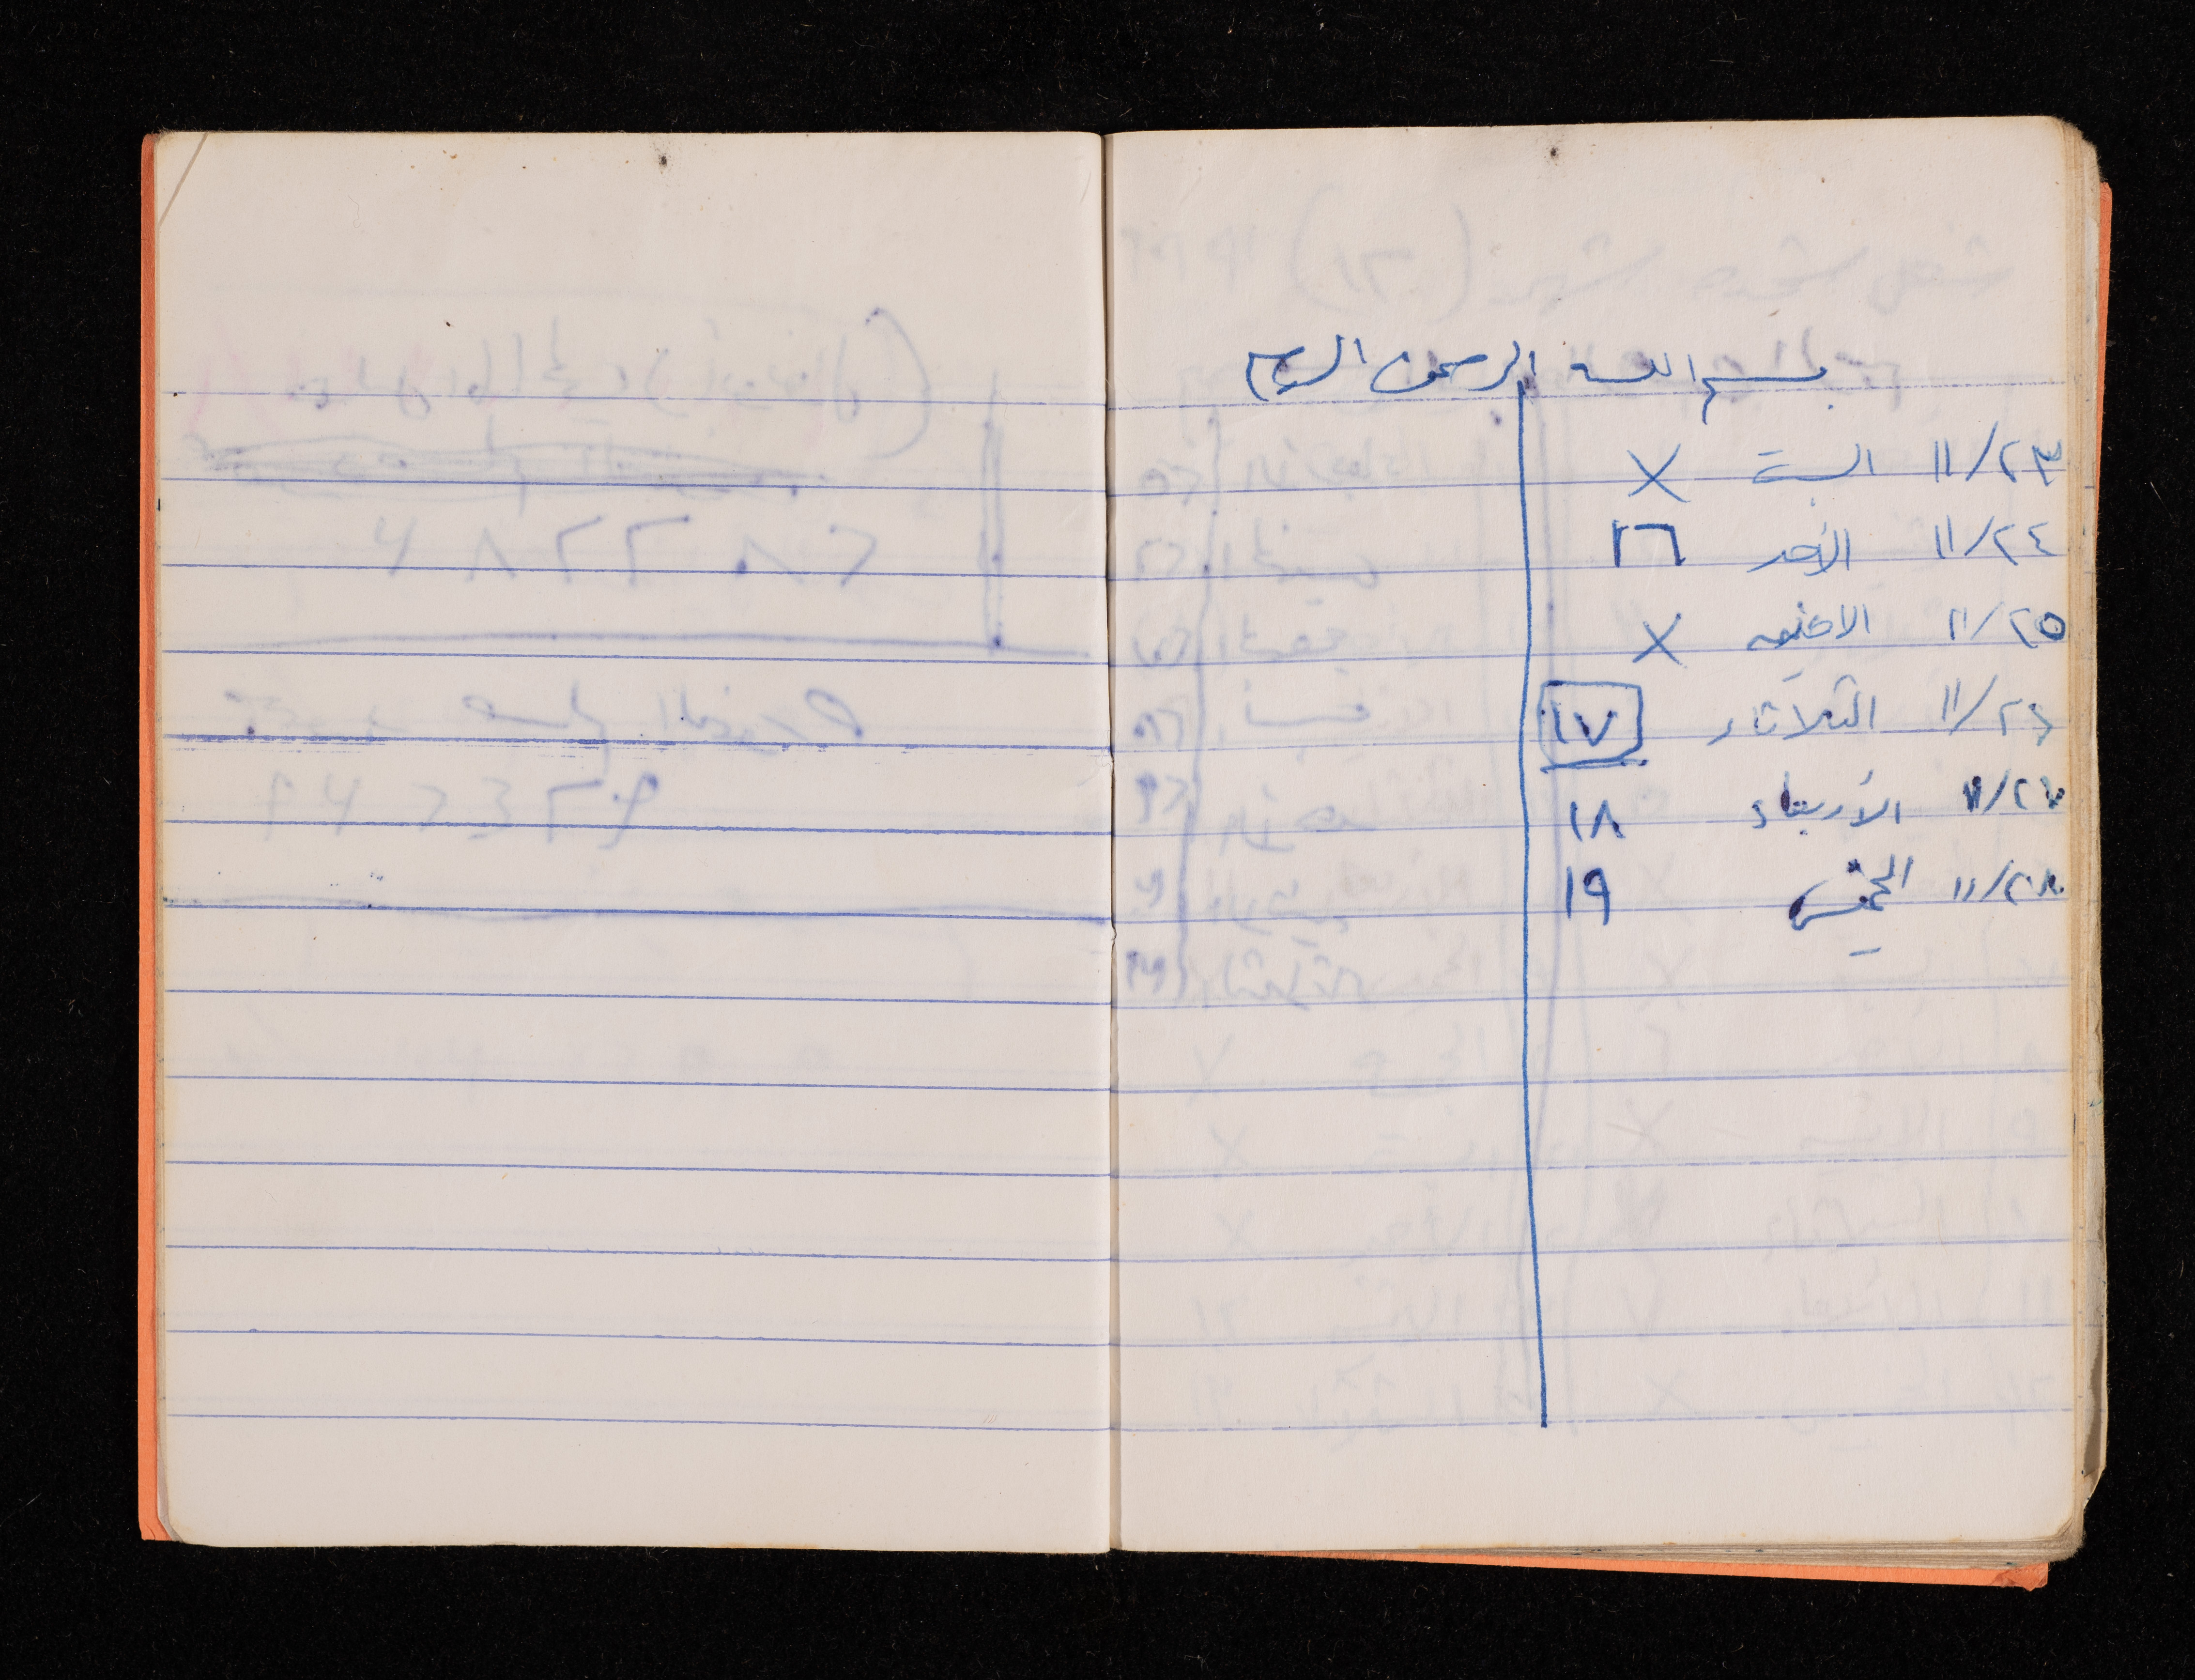 بسم الله الرحمن الرحيم
١١/٢٣ السبت X
١١/٢٤ الأحد ١٦
١١/٢٥ الاثنين X
١١/٢٦ الثلاثاء ١٧
١١/٢٧ الأربعاء ١٨
١١/٢٨ الخميس ١٩